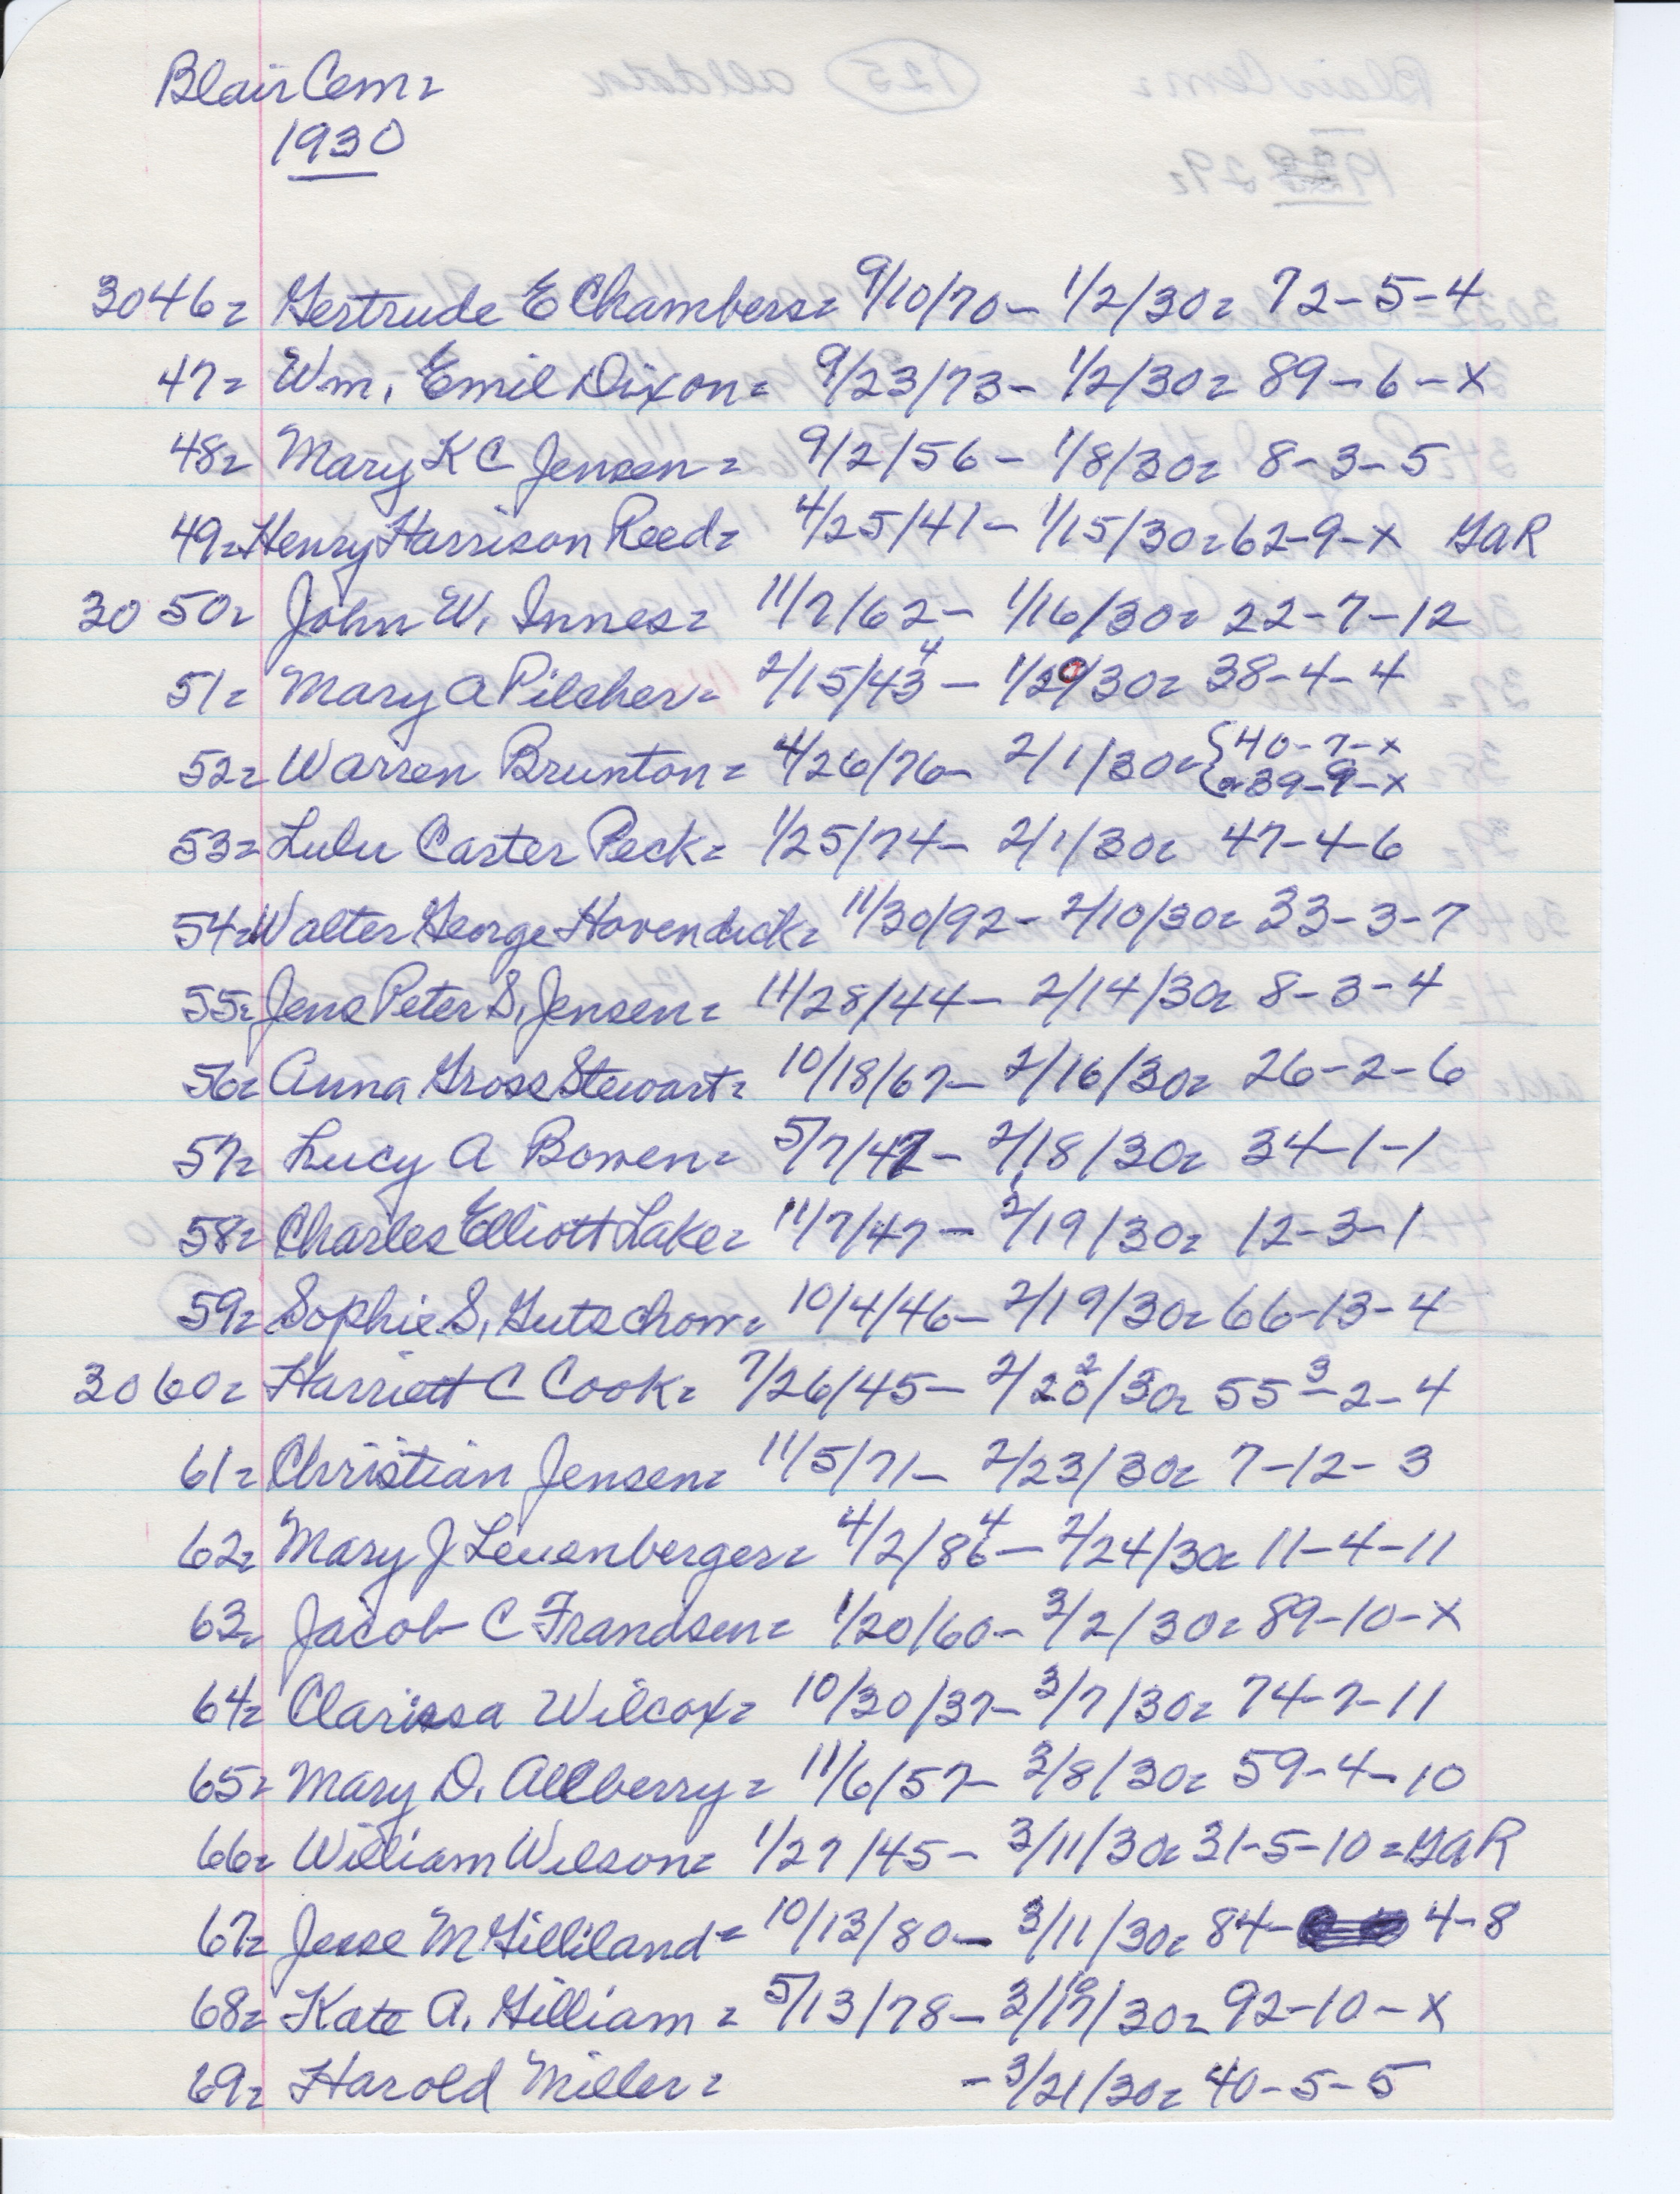 Blair Cem=
1930
3046= Gertrude E Chambers= 9/10/70- 1/2/30= 72-5-4
47= Wm. Emil Dixon= 9/23/73- 1/2/30= 89-6-X
48= Mary K C Jensen= 9/2/56- 1/8/30= 8-3-5
49= Henry Harrison Reed= 4/25/41- 1/15/30= 62-9-X GAR
3050= John W. Innes= 11/7/62- 1/16/30= 22-7-12
4
51= Mary A Pilcher= 2/15/43- 1/29/30= 38-4-4
52= Warren Brunton= 4/26/76- 2/1/30= {40-7-X
{or 39-9-X
53= Lulu Carter Peck= 1/25/74- 2/1/30= 47-4-6
54= Walter George Hovendick= 11/30/92- 2/10/30= 33-3-7
55= Jens Peter S. Jensen= 11/28/44- 2/14/30= 8-3-4
56= Anna Gross Stewart= 10/18/67- 2/16/30= 26-2-6
57= Lucy A Bowen= 5/7/47- 2/18/30= 34-1-1
58= Charles Elliott Lake= 11/7/47- 2/19/30= 12-3-1
59= Sophie S. Gutschow= 10/4/46- 2/19/30= 66-13-4
2 3
3060= Harriett C Cook= 7/26/45- 2/20/30= 55-2-4
61= Christian Jensen= 11/5/71- 2/23/30= 7-12-3
4
62= Mary J Leuenberger= 4/2/86- 2/24/30= 11-4-11
63= Jacob C Frandsen= 1/20/60- 3/2/30= 89-10-X
64= Clarissa Wilcox= 10/30/37- 3/7/30= 74-7-11
65= Mary D. Allberry= 11/6/57- 3/8/30= 59-4-10
66= William Wilson= 1/27/45- 3/11/30= 31-5-10= GAR
67= Jesse M Gilliland= 10/13/80- 3/11/30= 84- 4-8
68= Kate A. Gilliam= 5/13/78- 3/17/30= 92-10-X
69= Harold Miller= -3/21/30= 40-5-5